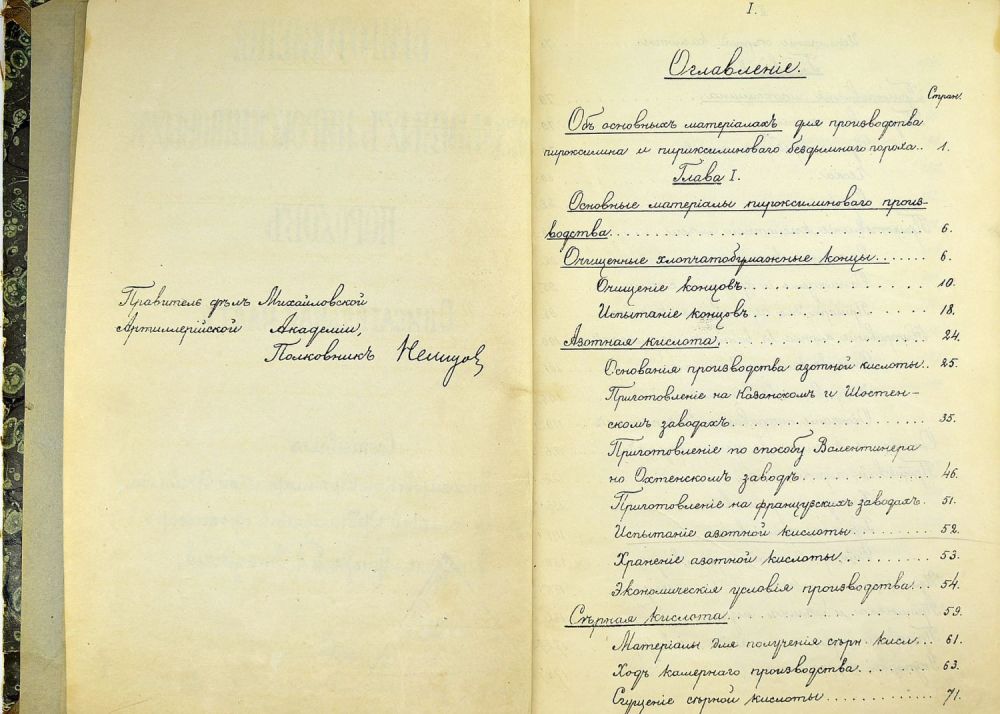 Правитель дѣлъ Михайловской
Артиллерійской Академіи,
Полковникъ
I.
Оглавленіе.
Стран.
Объ основныхъ матеріалахъ для производства
пироксилина и пироксилиноваго бездымнаго пороха.. 1.
Глава I.
Основные матеріалы пироксилиноваго произ-
водства........ 6.
Очищенные хлопчатобумажные концы....... 6.
Очищеніе концовъ.......... 10.
Испытаніе концовъ.......... 18.
Азотная кислота.......... 24.
Основанія производства азотной кислоты.. 25.
Приготовленіе на Казанскомъ и Шостен-
скомъ заводахъ.......... 35.
Приготовленіе по способу Валентинера
но Охтенскомъ заводѣ.......... 46.
Приготовленіе на французскихъ заводахъ. 51.
Испытаніе азотной кислоты....... 52.
Храненіе азотной кислоты....... 53.
Экономическія условія производства... 54.
Сѣрная кислота.......... 59.
Матеріалы для полученія сѣрн. кисл... 61.
Ходъ камернаго производства....... 63.
Сгущеніе сѣрной кислоты.......... 71.